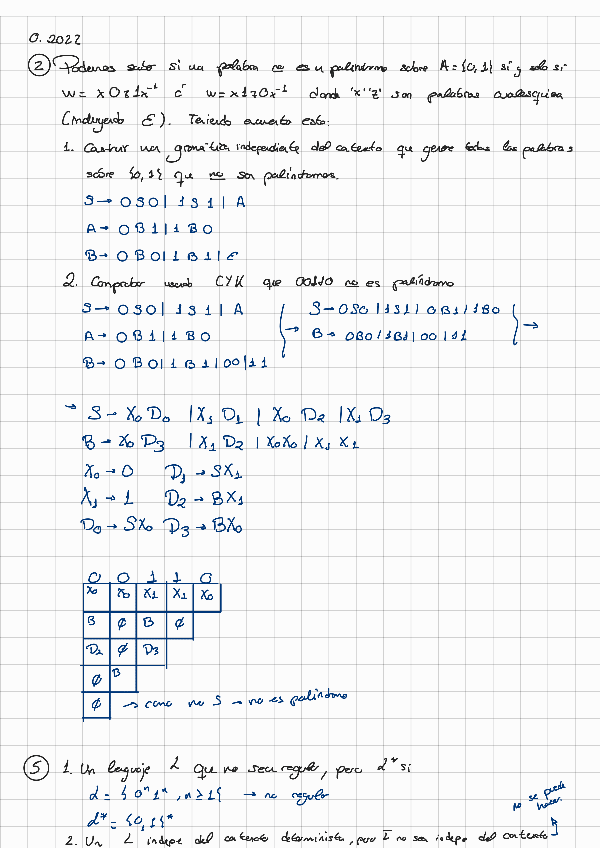 O. 2022
② Podemos saber si una palabra no es un palíndromo sobre A = {0,1} si y solo si
w = x0z1x⁻¹ ó w = x1z0x⁻¹ donde 'x' 'z' son palabras cualesquiera
(incluyendo ε). Teniendo en cuenta esto:
1. Construir una gramática independiente del contexto que genere todas las palabras
sobre {0,1} que no son palíndromos.
S → 0S0 | 1S1 | A
A → 0B1 | 1B0
B → 0B0 | 1B1 | ε
2. Comprobar usando CYK que 00110 no es palíndromo
S → 0S0 | 1S1 | A
A → 0B1 | 1B0
B → 0B0 | 1B1 | 00 | 11
→ S → 0S0 | 1S1 | 0B1 | 1B0
B → 0B0 | 1B1 | 00 | 11 →
→ S → X₀D₀ | X₁D₁ | X₀D₂ | X₁D₃
B → X₀D₃ | X₁D₂ | X₀X₀ | X₁X₁
X₀ → 0 D₁ → SX₁
X₁ → 1 D₂ → BX₁
D₀ → SX₀ D₃ → BX₀
0 0 1 1 0
X₀ X₀ X₁ X₁ X₀
B ∅ B ∅
D₂ ∅ D₃
∅ B
∅ → como no S → no es palíndromo
⑤ 1. Un lenguaje L que no sea regular, pero L* sí
L = {0ⁿ1ⁿ, n≥1} → no regular
L* = {0,1}*
no se puede hacer.
2. Un L indepe del contexto determinista, pero L̅ no sea indepe del contexto